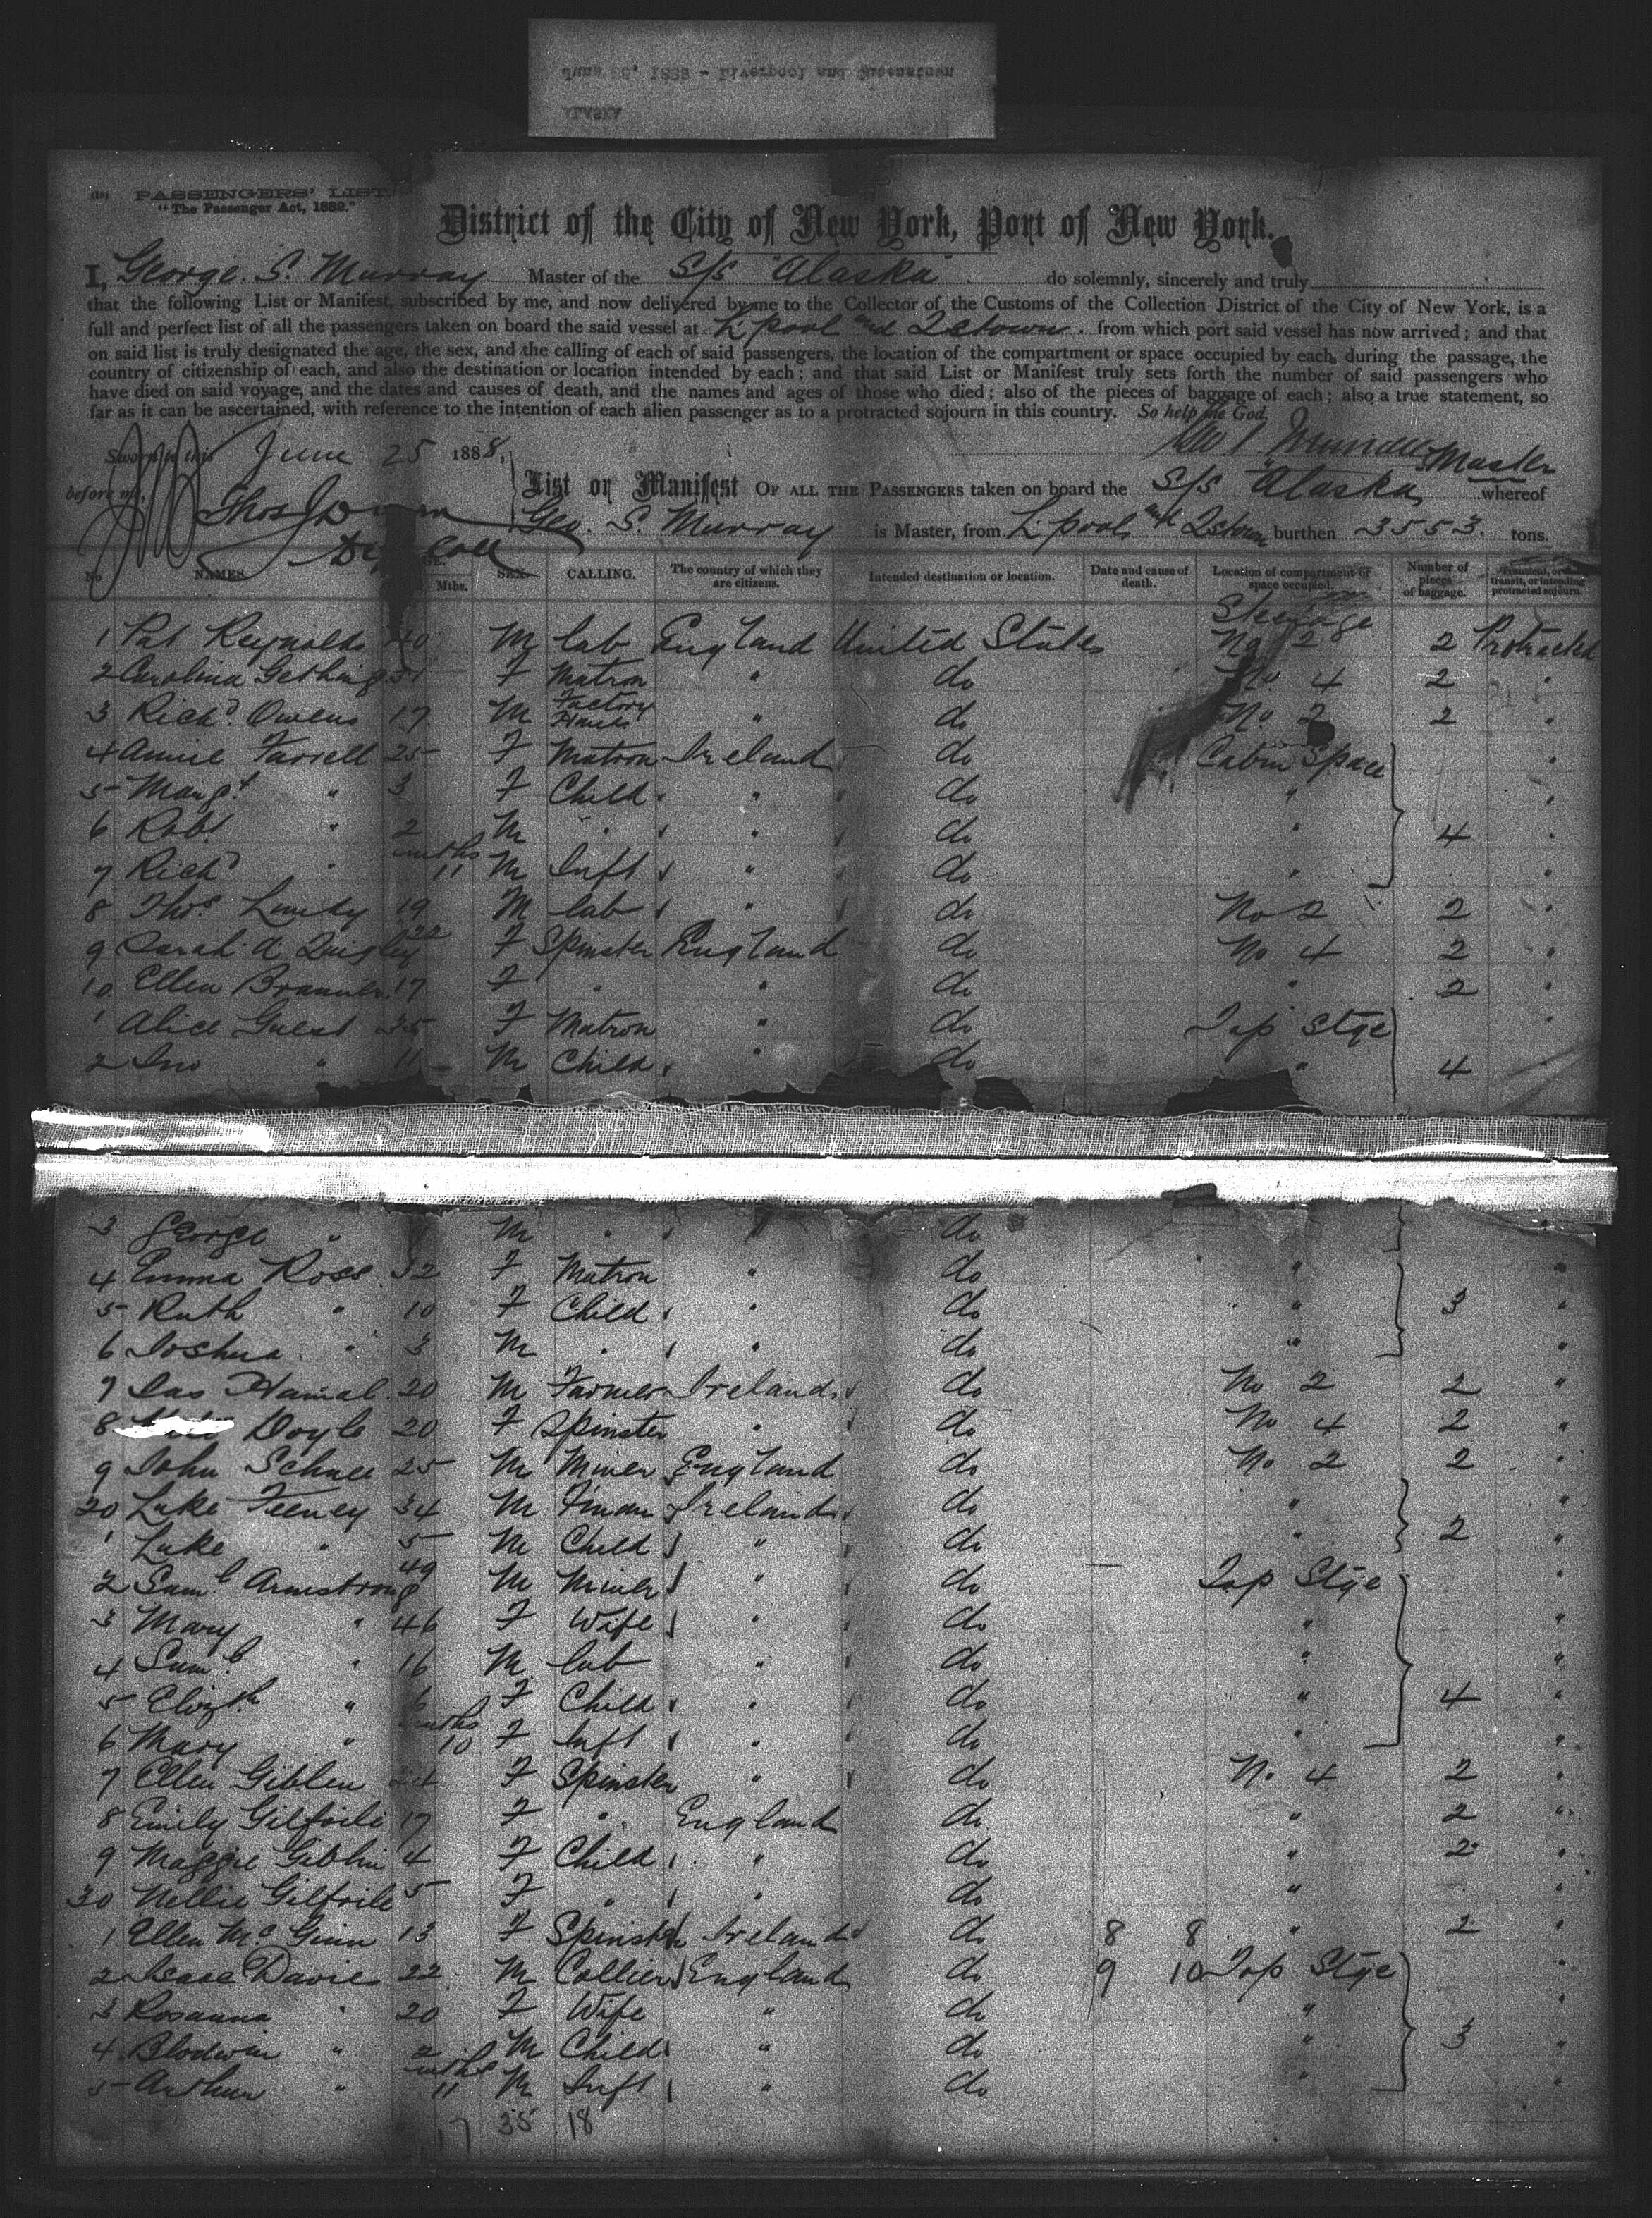 June 25, 1888 - Liverpool and Queenstown
ALASKA
PASSENGERS' LIST.
"The Passenger Act, 1882."
District of the City of New York, Port of New York.
I, George. S. Murray Master of the S/s "Alaska" do solemnly, sincerely and truly
that the following List or Manifest, subscribed by me, and now delivered by me to the Collector of the Customs of the Collection District of the City of New York, is a
full and perfect list of all the passengers taken on board the said vessel at L'pool and Qstown from which port said vessel has now arrived; and that
on said list is truly designated the age, the sex, and the calling of each of said passengers, the location of the compartment or space occupied by each, during the passage, the
country of citizenship of each, and also the destination or location intended by each; and that said List or Manifest truly sets forth the number of said passengers who
have died on said voyage, and the dates and causes of death, and the names and ages of those who died; also of the pieces of baggage of each; also a true statement, so
far as it can be ascertained, with reference to the intention of each alien passenger as to a protracted sojourn in this country. So help me God.
Sworn to this June 25 1888, Master
before me, List or Manifest OF ALL THE PASSENGERS taken on board the S/s "Alaska" whereof
Geo. S. Murray is Master, from L'pool and Qstown burthen 3553. tons.
No NAMES. Mths. SEX. CALLING. The country of which they are citizens. Intended destination or location. Date and cause of death. Location of compartment or space occupied. Number of pieces of baggage. Transient, or in transit, or intending protracted sojourn.
Steerage
1 Pat Reynolds 40 M lab England United States No 2 2 Protracted
2 Carolina Gething F Matron " do No 4 2 "
3 Richd. Owens 17 M Factory Hand " do No 2 2 "
4 Annie Farrell 25 F Matron Ireland do Cabin Space "
5 Margt " 3 F Child " do " "
6 Robt " 2 M " " do " 4 "
7 Richd " mths 11 M Inft " do " "
8 Thos. Lundy 19 M lab " do No 2 2 "
9 Sarah A Quigley 22 F Spinster England do No 4 2 "
10 Ellen 17 F " " do " 2
1 Alice Guest 35 F Matron " do Top Stge "
2 Jno " 11 M Child " do " 4
3 George " M " do "
4 Emma Ross 32 F Matron " do " "
5 Ruth " 10 F Child " do " 3 "
6 Joshua " 3 M " " do " "
7 Jas Hamal 20 M Farmer Ireland do No 2 2 "
8 Doyle 20 F Spinster " do No 4 2 "
9 John Schnee 25 M Miner England do No 2 2 "
20 Luke Feeney 34 M Ireland do " "
1 Luke " 5 M Child " do " 2 "
2 Saml Armstrong 49 M Miner " do Top Stge
3 Mary " 46 F Wife " do " "
4 Saml " 16 M lab " do " "
5 Elizth " 6 F Child " do " 4 "
6 Mary " mths 10 F Inft " do " "
7 Ellen Giblen 24 F Spinster " do No 4 2 "
8 Emily Gilfoile 17 F " England do " 2 "
9 Maggie Giblin 4 F Child " do " 2 "
30 Nellie Gilfoile 5 F " " do " "
1 Ellen Mc Ginn 13 F Spinster Ireland do 8 8 " 2 "
2 Isaac Davies 22 M Collier England do 9 10 Top Stge "
3 Rosanna " 20 F Wife " do " "
4 Blodwin " 2 M Child " do " 3 "
5 Arthur " mths 11 M Inft " do " "
17 35 18